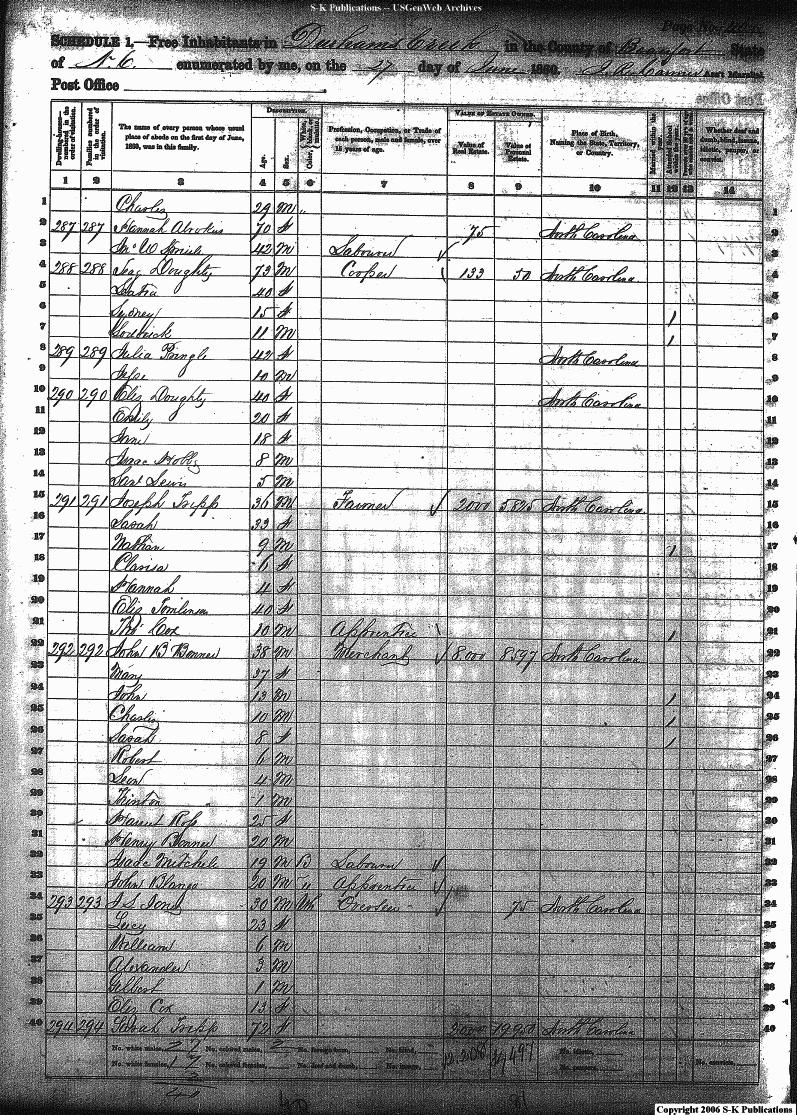 S-K Publications -- USGenWeb Archives
Page No.
SCHEDULE 1.—Free Inhabitants in Durhams Creek in the County of Beaufort State
of N. C. enumerated by me, on the 27 day of June 1860. Ass't Marshal.
Post Office
DESCRIPTION. VALUE OF ESTATE OWNED.
Dwelling-houses—numbered in the order of visitation. Families numbered in the order of visitation. The name of every person whose usual place of abode on the first day of June, 1860, was in this family. Age. Sex. Color, Profession, Occupation, or Trade of each person, male and female, over 15 years of age. Value of Real Estate. Value of Personal Estate. Place of Birth, Naming the State, Territory, or Country. Married within the year. Attended School within the year. Whether deaf and dumb, blind, insane, idiotic, pauper, or convict.
1 2 3 4 5 6 7 8 9 10 11 12 13 14
1 Charles 29 M "
2 287 287 Hannah 70 f 75 North Carolina
3 42 M Labourer
4 288 288 Doughty 73 M Cooper 133 50 North Carolina
5 40 f
6 Sydney 15 f 1
7 11 M 1
8 289 289 Julia Pringle 42 f North Carolina
9 10 M
10 290 290 Eliz Doughty 40 f North Carolina
11 Emily 20 f
12 18 f
13 Isaac 8 M
14 Lewis 5 M
15 291 291 Joseph Tripp 36 M Farmer 2000 5825 North Carolina
16 Sarah 33 f
17 Nathan 9 M 1
18 Clarisa 6 f
19 Hannah 4 f
20 Eliz Tomlinson 40 f
21 Cox 10 M Apprentice 1
22 292 292 John B Bonner 38 M Merchant 8.000 8597 North Carolina
23 Mary 37 f
24 John 13 M 1
25 Charles 10 M 1
26 Sarah 8 f 1
27 Robert 6 M
28 4 M
29 1 M
30 Ross 25 f
31 Henry Bonner 20 M
32 Isaac Mitchel 19 M B Labourer
33 John Blango 20 M " Apprentice
34 293 293 J S 30 M Wh Overseer 75 North Carolina
35 Lucy 23 f
36 William 6 M
37 Alexander 3 M
38 Gilbert 1 M
39 Eliz Cox 13 f
40 294 294 Sarah Tripp 72 f 19950 North Carolina
No. white males, No. colored males, 2 No. foreign born, No. blind, No. idiotic, No. convicts,
No. white females, No. colored females, No. deaf and dumb, No. insane, No. paupers,
Copyright 2006 S-K Publications